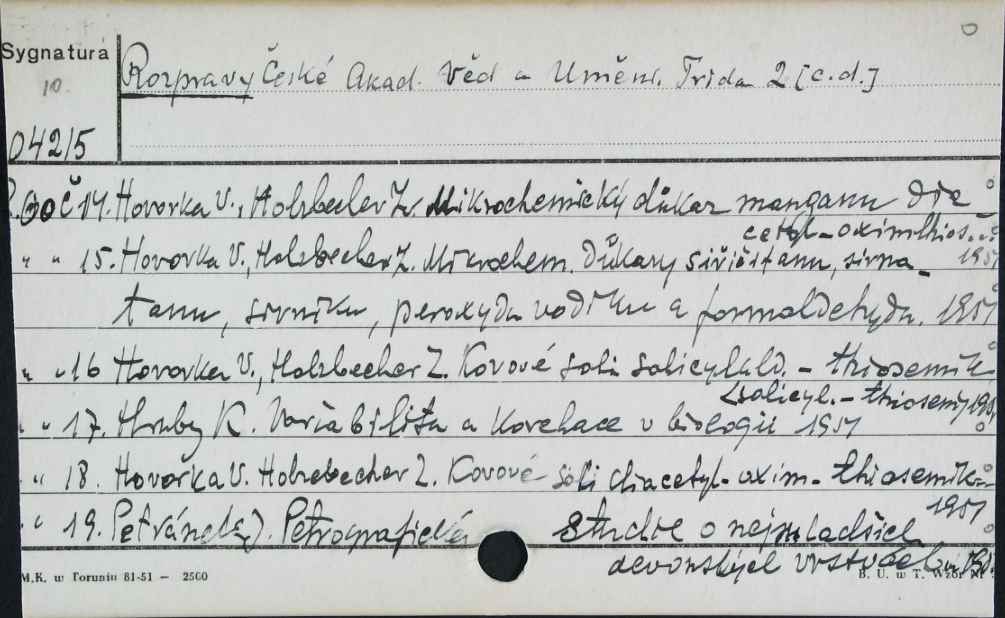 Sygnatura
10.
Rozpravy České Akad. Věd a Uměni. Trida 2 [c.d.]
D42/5
R. 60 č 14. Hovorka V., Holzbecher Z. Mikrochemický důkaz manganu die
cetyl-oximthios...
" " 15. Hovorka V., Holzbecher Z. Mikrochem. Důkazy siřičitanu, sirna- 1951
tanu, sirniku, peroxydu vodíku a formaldehydu. 1951
" " 16 Hovorka V., Holzbecher Z. Kovové soli salicylald. - thiosemik
salicyl. - thiosemi 1951
" " 17. Hruby K. Variabilita a Korelace v biologii 1951
" " 18. Hovorka V. Holzebecher Z. Kovové soli diacetyl-oxim-thiosemik-
1951
" " 19. Petránek J. Petrografická studie o nejmladšich
devonských vrstvach
M.K. w Toruniu 81-51 — 2500
B. U. w T. Wzór Nr